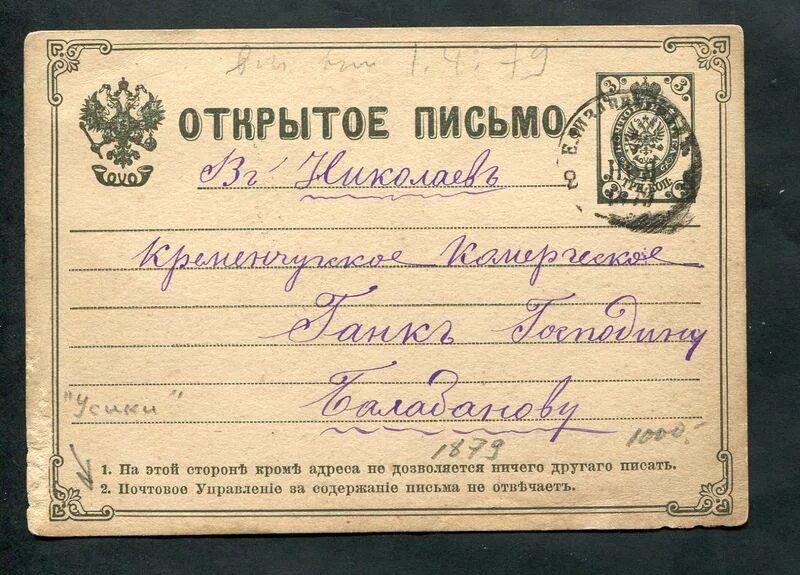 1.4.79
ОТКРЫТОЕ ПИСЬМО
3 3
ТРИ КОП.
Вг Николаевъ
Кременчугское Комерческое
Банкъ Господину
Балабанову
"Усики"
1879
1000.-
1. На этой сторонѣ кромѣ адреса не дозволяется ничего другаго писать.
2. Почтовое Управленіе за содержаніе письма не отвѣчаетъ.